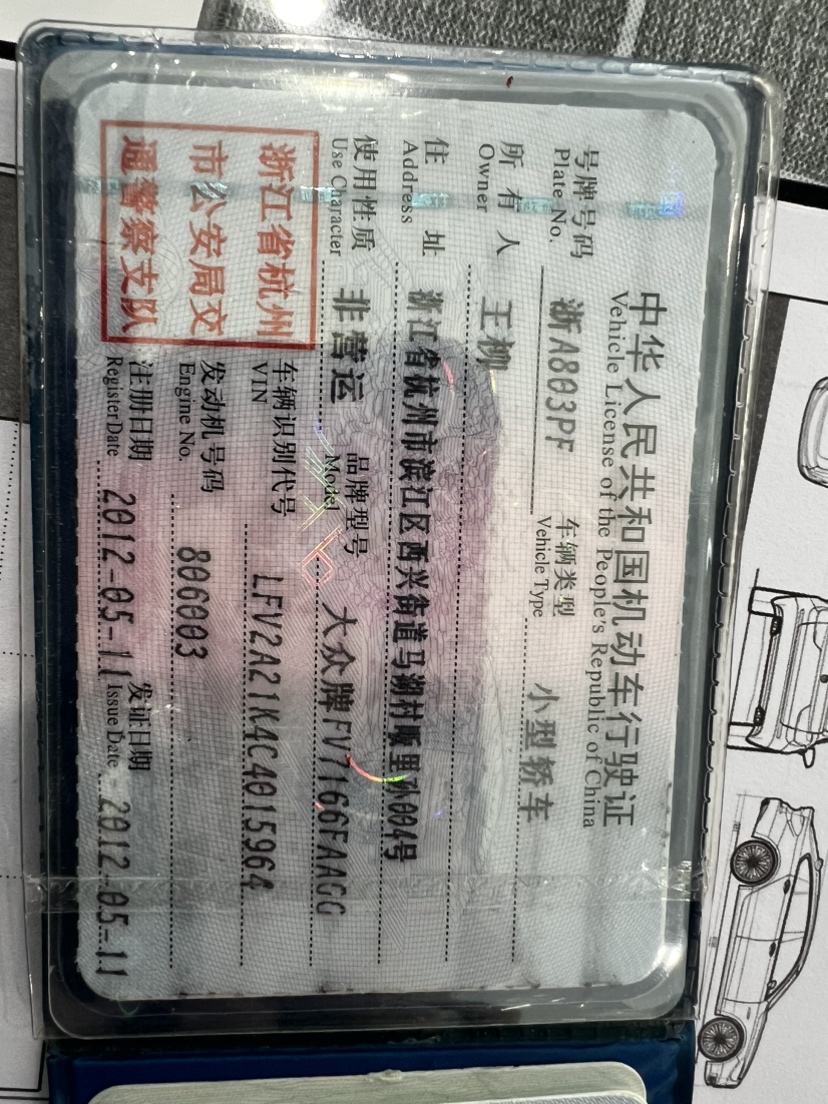 中华人民共和国机动车行驶证
Vehicle License of the People's Republic of China
号牌号码 浙A803PF 车辆类型 小型轿车
Plate No. Vehicle Type
所有人 王柳
Owner
住址 浙江省杭州市滨江区西兴街道马湖村 里 004号
Address
使用性质 非营运 品牌型号 大众牌FV7166FAAGG
Use Character Model
浙江省杭州
市公安局交
通警察支队
车辆识别代号 LFV2A21K4C4015964
VIN
发动机号码 806003
Engine No.
注册日期 2012-05-11 发证日期 2012-05-11
Register Date Issue Date